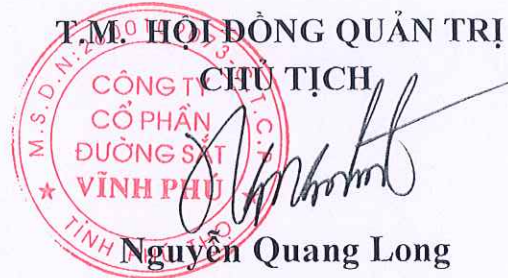 T.M. HỘI ĐỒNG QUẢN TRỊ
CHỦ TỊCH
CÔNG TY
CỔ PHẦN
ĐƯỜNG SẮT
VĨNH PHÚ
TỈNH PHÚ THỌ
Nguyễn Quang Long